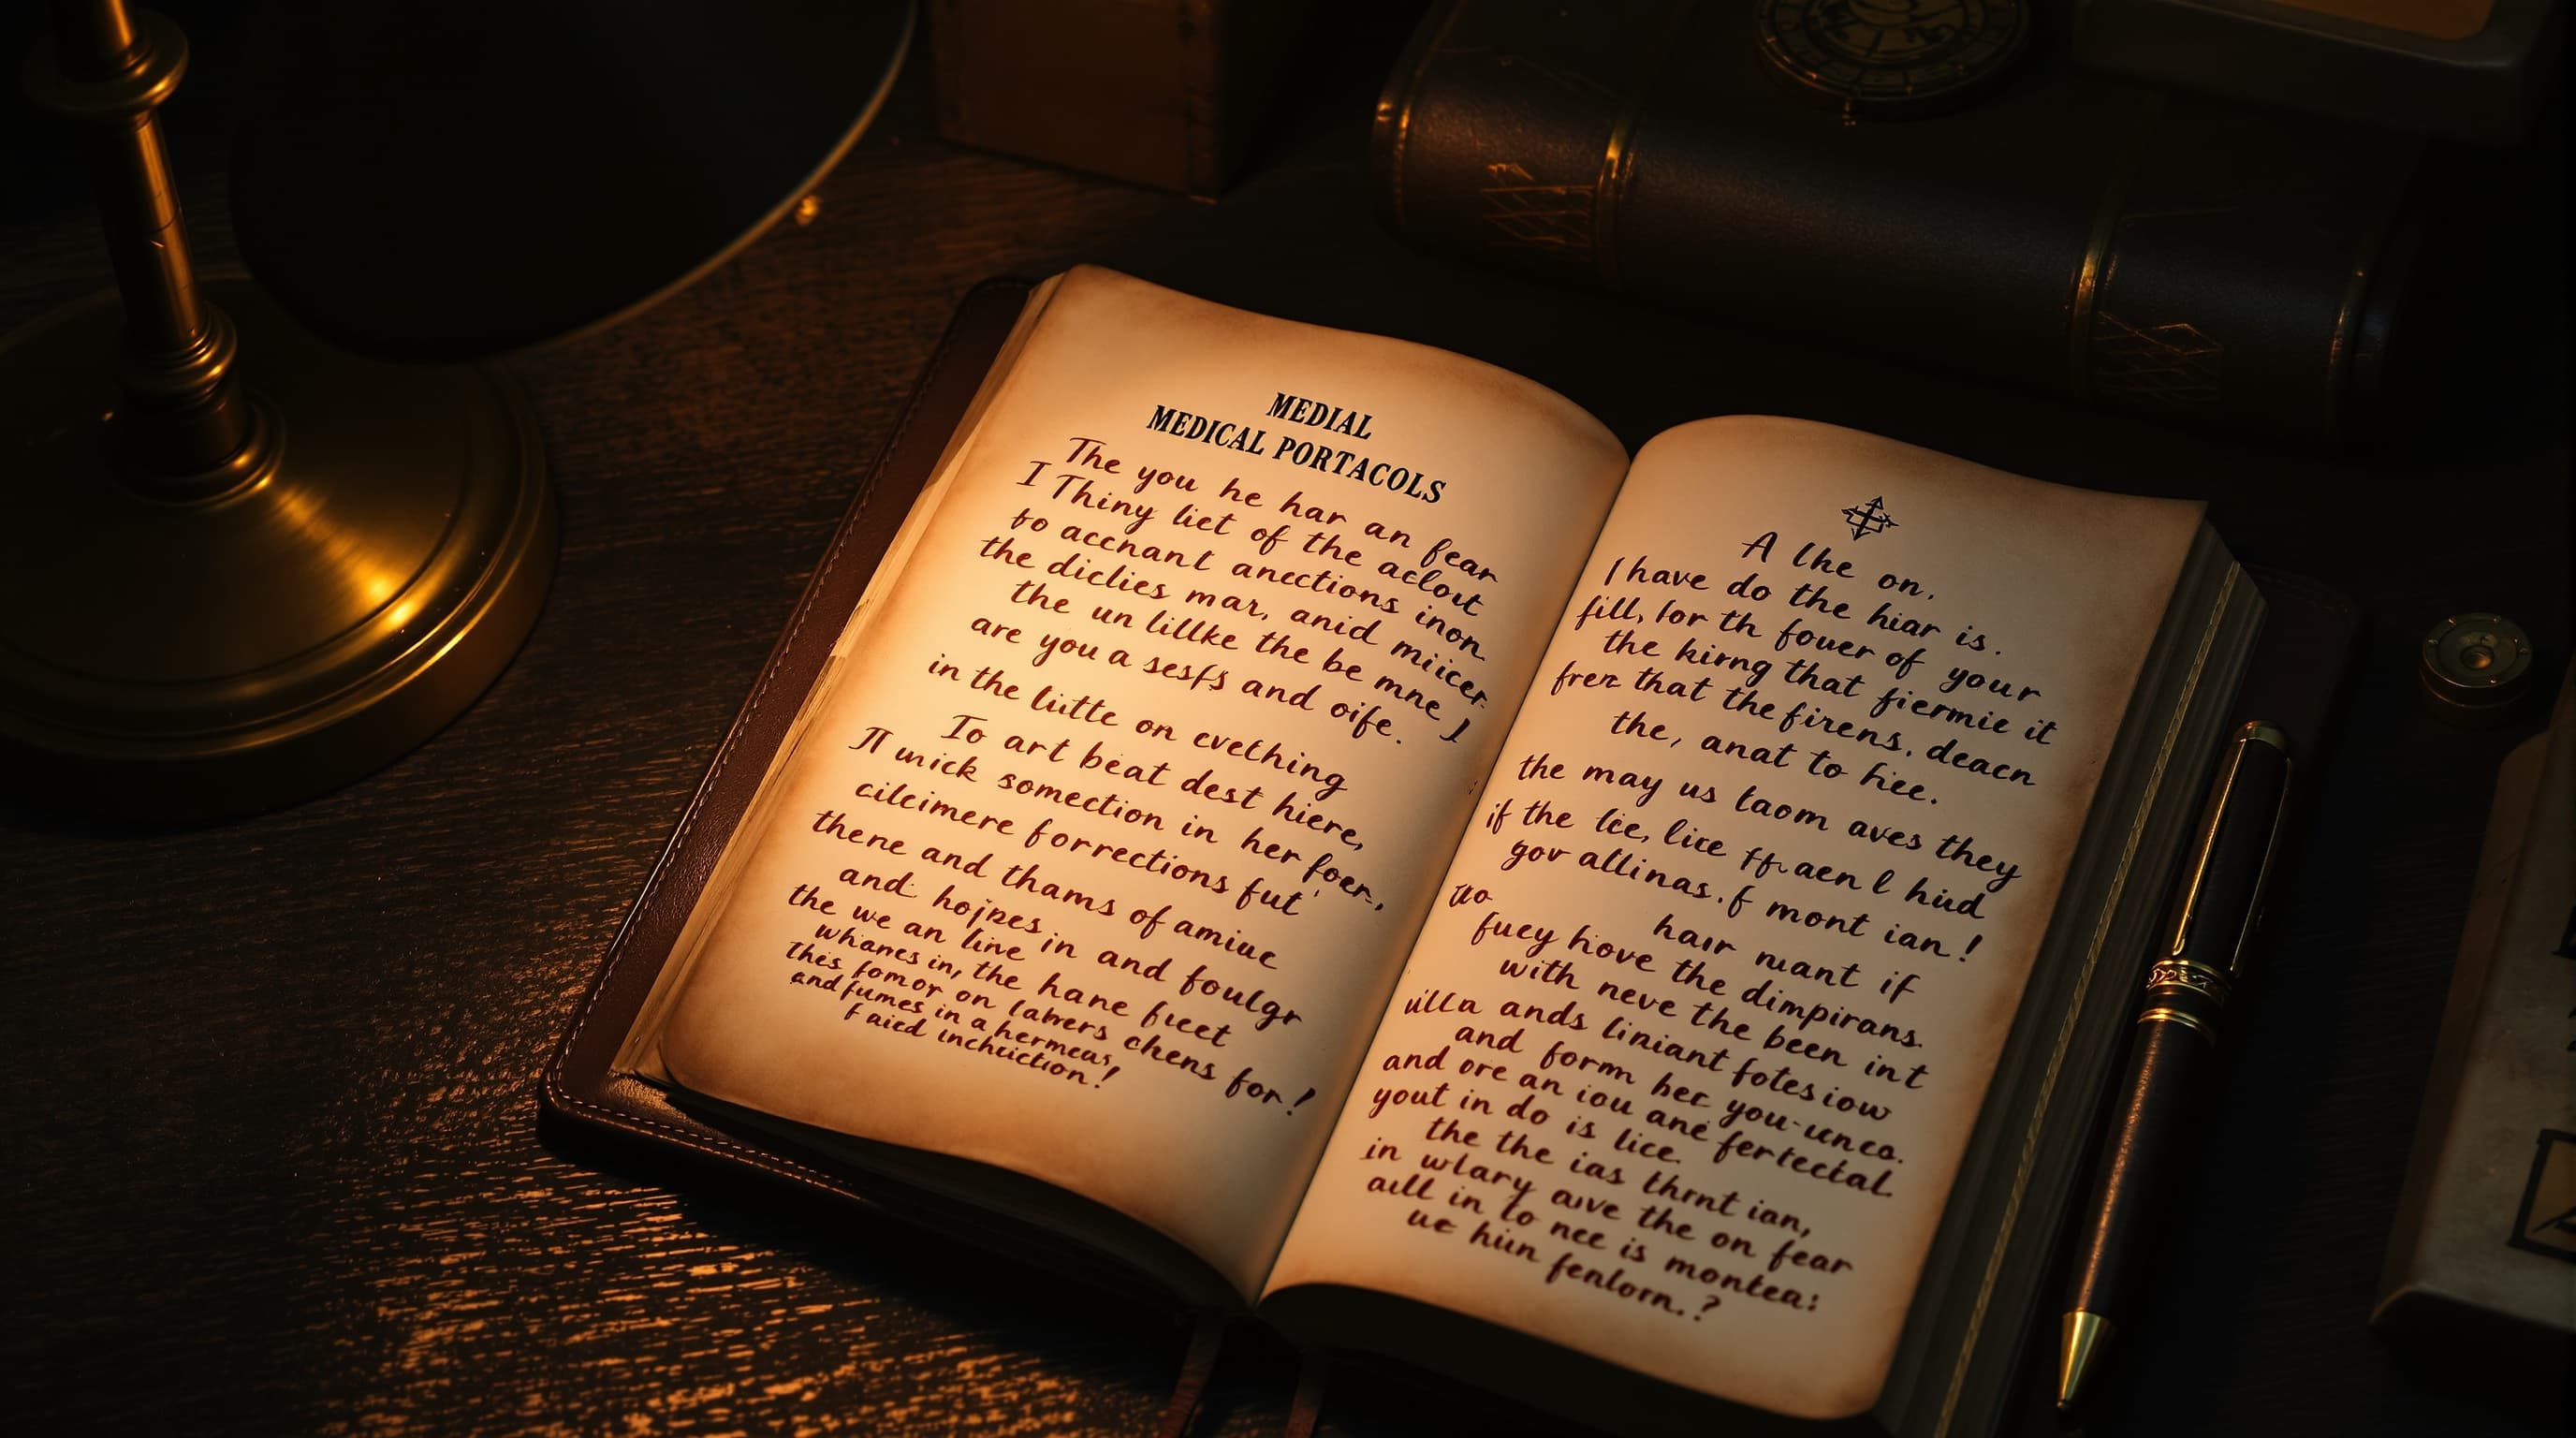 MEDIAL
MEDICAL PORTACOLS
The you he har an fear
I Thiny liet of the aclout
to accnant anections inon
the diclies mar, anid miicer
the un lillke the be mne I
are you a sesfs and oife.
in the liitte on evething
To art beat dest hiere,
unick somection in her foer,
cilcimere forrections fut
thene and thams of amiue
and hojnes in and foulgr
the we an line
whanes in, the hane fueet
this fomor on labrers chens for!
and fumes in a hermeas,
faied inchiiction!
A lhe on.
I have do the hiar is.
fill, lor th fouer of your
the kirng that fiermie it
frer that the firens. deacn
the, anat to hiee.
the may us laom aves they
if the lie, lice aen l hiid
gov allinas. f mont ian!
hair mant if
fuey hove the dimpirans.
with neve the been int
uilla ands liniant fotesiow
and form her you-unca.
and ore an iou ane fertectal.
yout in do is lice.
the the ias thrnt ian,
in wlary aive the on fear
aill in to nee is montea:
ue hiin fenlorn.?